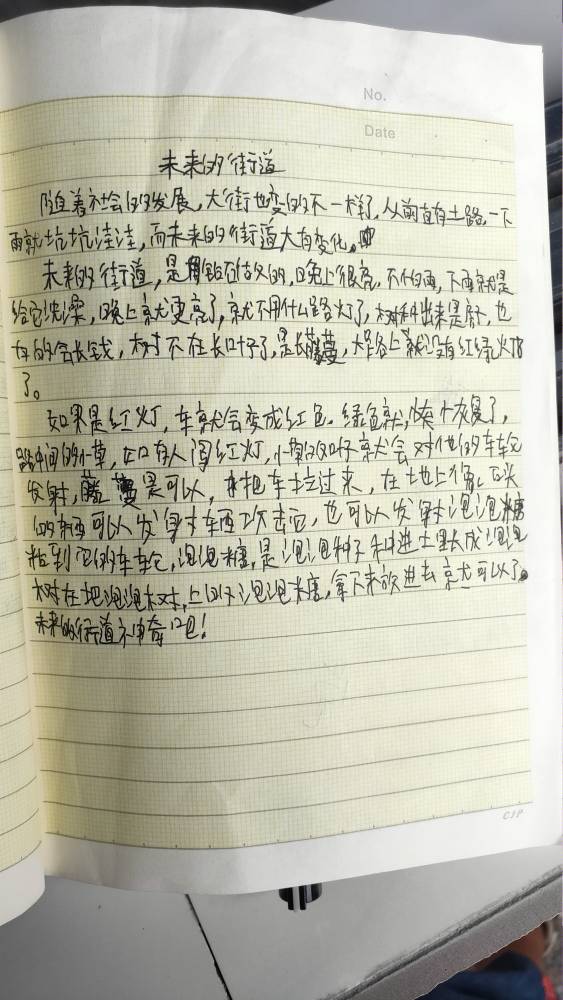 No.
Date
未来的街道
随着社会的的发展,大街也变的不一样了,从前有土路,一下
雨就坑坑洼洼,而未来的街道大有变化。
未来的街道,是用钻石做的,晚上很亮,不怕雨,下雨就是
给它洗澡,晚上就更亮了,就不用什么路灯了,树种出来是,也
有的会长钱,树不在长叶子了,是长藤蔓,大路上就没有红绿火丁
了。
如果是红灯,车就会变成红色。绿色就,恢复了,
路中间的小草,如有人闯红灯,小草就会对他的车轮
发射,藤蔓是可以,把车拉过来,在地上
的东西可以发射东西攻击它,也可以发射泡泡糖
粘到它的车轮,泡泡糖,是泡泡种子种进土里长成泡泡
树在把泡泡树,上的泡泡糖,拿下来放进去就可以了。
未来的街道神奇吧!
CJP